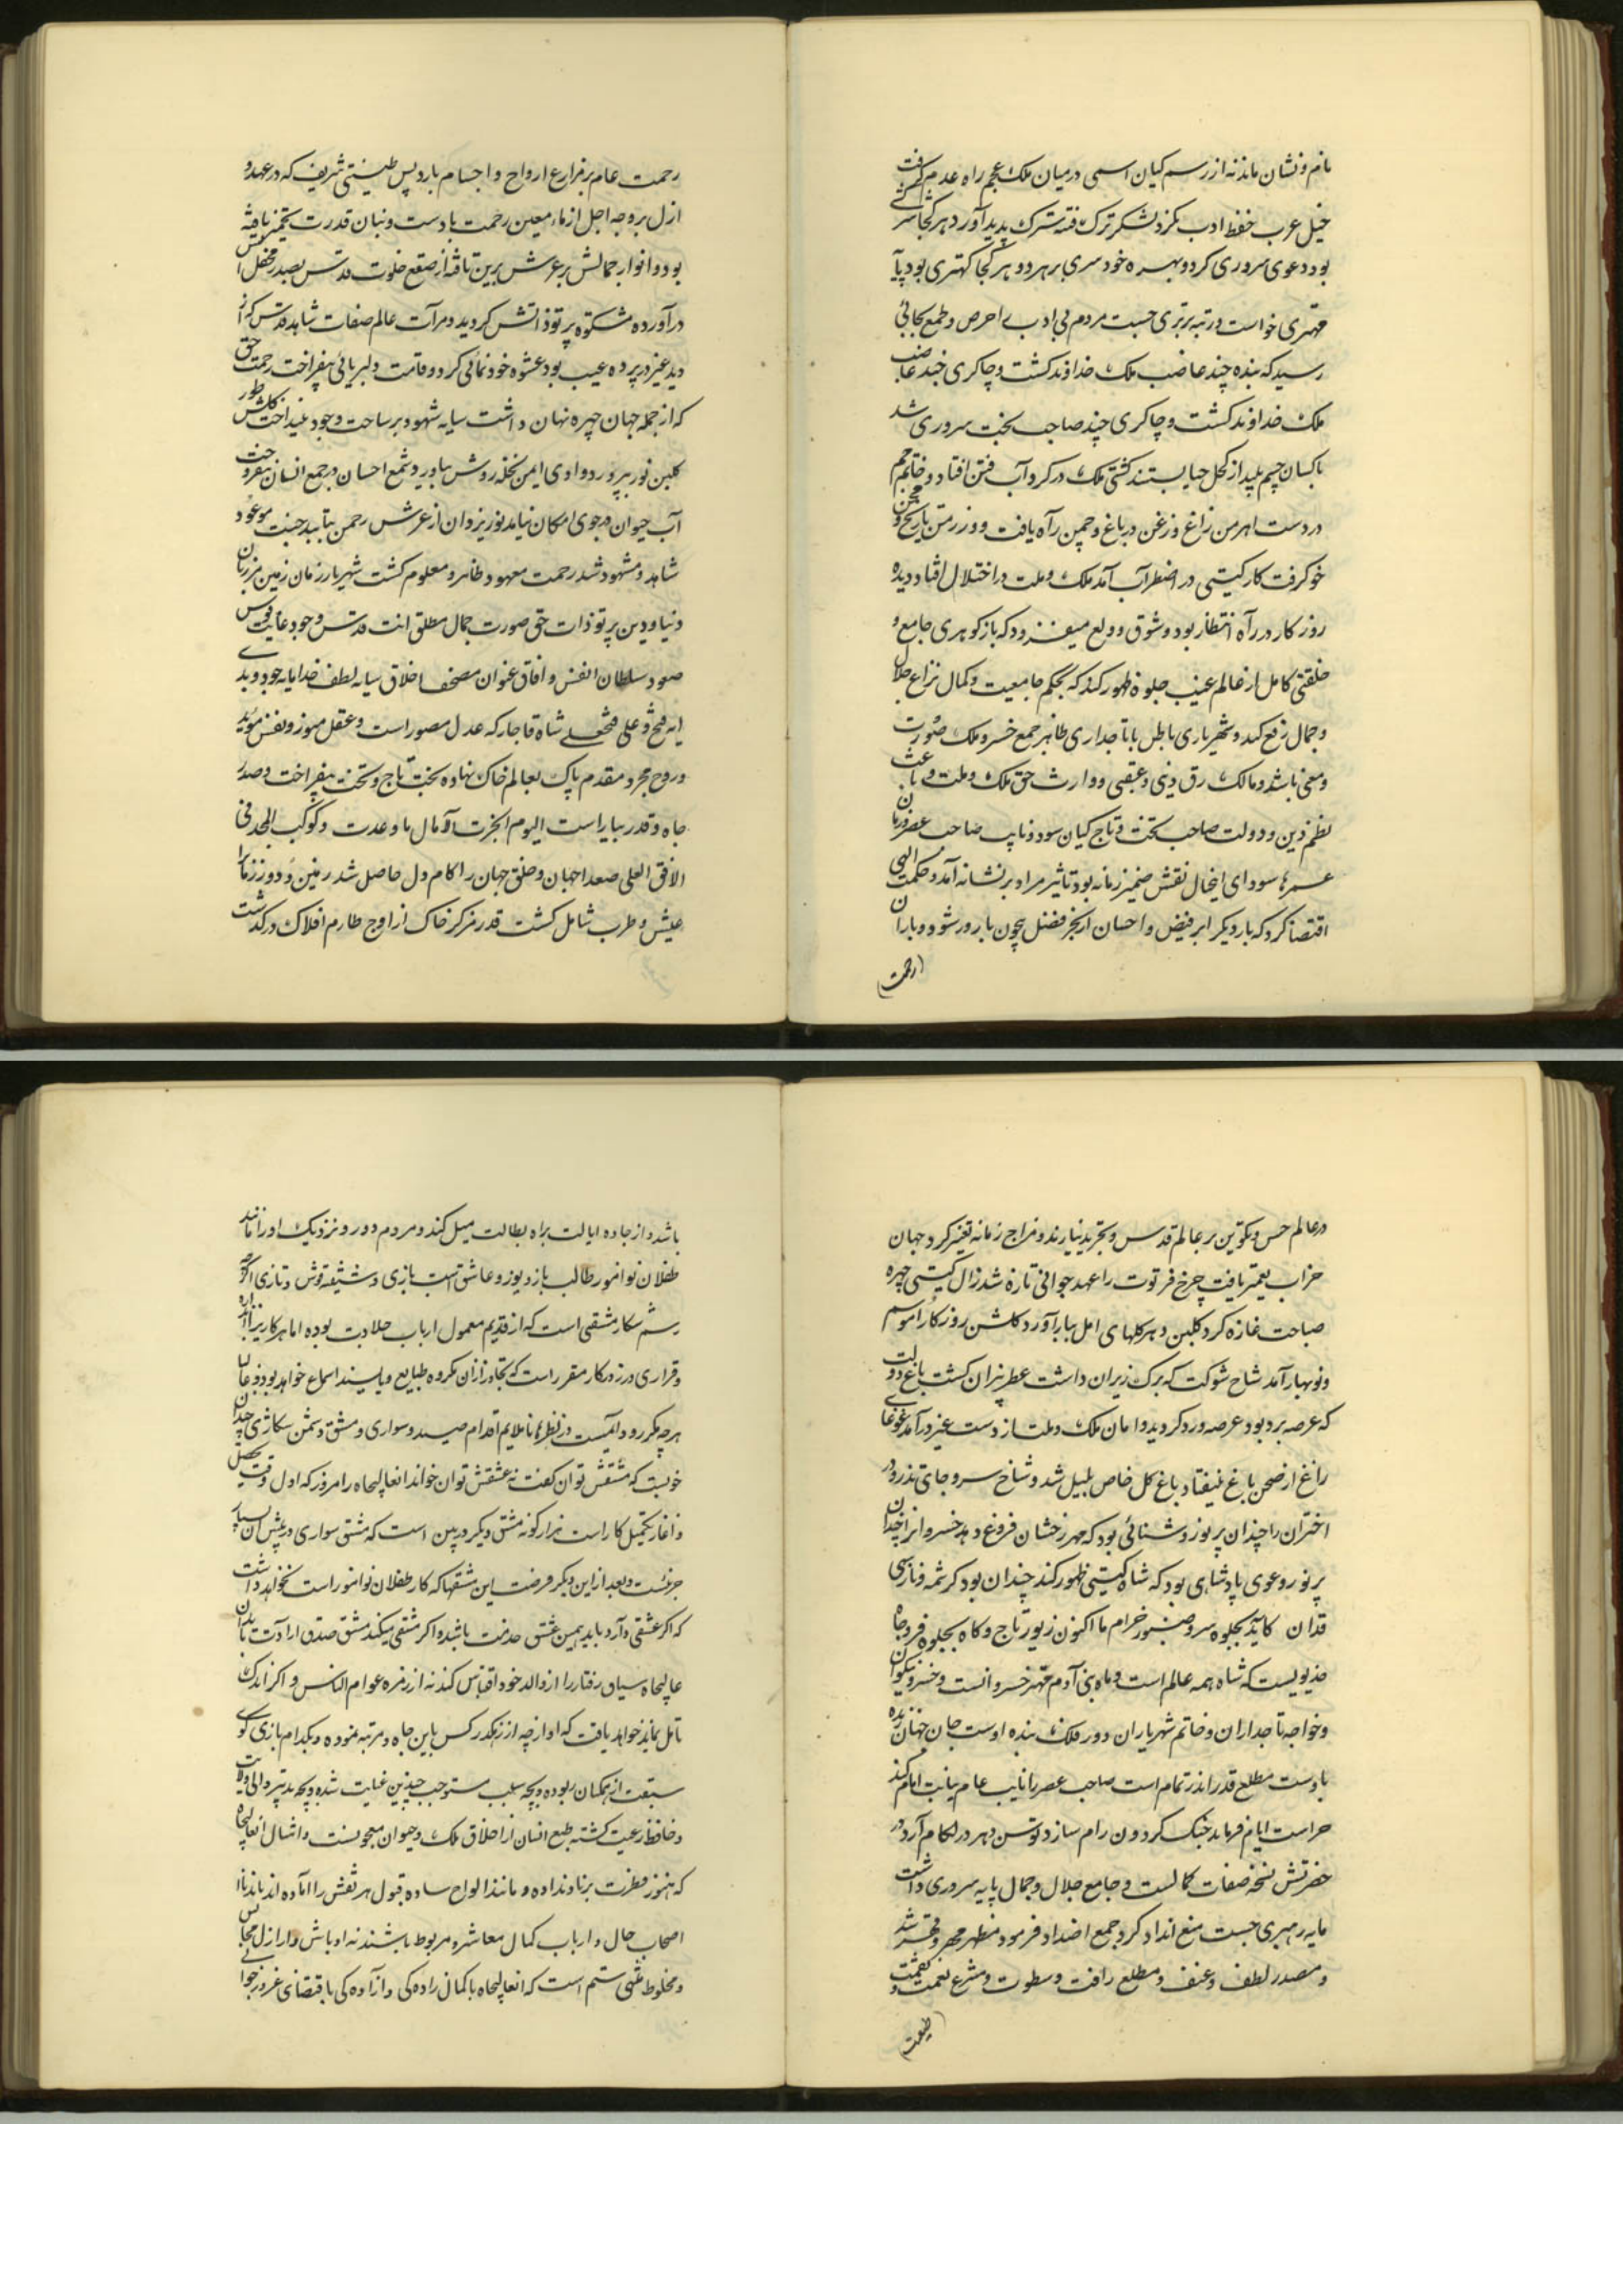 نام و نشان ماند نه از رسم کیان اسمی در میان ملک عجم راه عدم گرفت
خیل عرب حفظ ادب نکرد لشکر ترک فتنه سترک پدید آورد هر کجا سری
بود دعوی سروری کرد و بهره خودسری برهر دو هر کجا کهتری بود پایه
مهتری خواست و رتبه برتری جست مردم بی ادب را حرص و طمع بجائی
رسید که بنده چند غاصب ملک خداوند کشت و چاکری چند غاصب
ملک خداوند کشت و چاکری چند صاحب تخت سروری شد
ناکسان چشم پلید از کحل حیا بستند کشتی ملک در کرداب فتن افتاد و خاتم جم
در دست اهرمن زاغ و زغن در باغ و چمن راه یافت و وز زمن با رنج و محن
خو کرفت کار کیتی در اضطراب آمد ملک و ملت در اختلال افتاد دیده
روزکار در راه انتظار بود و شوق و ولع میفزود که باز کوهری جامع و
خلقتی کامل از عالم غیب جلوه ظهور کند که بحکم جامعیت و کمال نزاع جلال
و جمال رفع کند و شهریاری باطل با تاجداری ظاهر جمع خسرو ملک صورت
و معنی باشد و مالک رق دنیی و عقبی و وارث حق ملک و ملت و باعث
نظم دین و دولت صاحب تخت و تاج کیان سود و نایب صاحب عصر و زمان
عمرها سودای اینخیال نقش ضمیر زمانه بود تا تیر مراد بر نشانه آمد و حکمت الهی
اقتضا کرد که بار دیگر ابر فیض و احسان از بحر فضل بیچون بارور شود و باران
(رحمت)
رحمت عام بر مزارع ارواح و اجسام بارد پس طینتی شریف که در عهد
ازل بر وجه اجل از ماء معین رحمت با دست و بنان قدرت تخمیر یافته
بود و انوار جمالش بر عرش برین تافته از صقع خلوت قدس بصدر محفل انس
در آورده مشکوه پرتو ذاتش کردید و مرآت عالم صفات شاهد قدس کز
دید غیر در پرده غیب بود عشوه خودنمائی کرد و قامت دلربائی بیفراخت رحمت حق
که از جمله جهان چهره نهان داشت سایه شهود بر ساحت وجود بینداخت کلشن طور
کلبن نور بپرورد و وادی ایمن نخله روشن بیاورد و شمع احسان در جمع انسان بیفروخت
آب حیوان در جوی امکان بیامد نور یزدان از عرش رحمن بتابید جنت موعود
شاهد و مشهود شد رحمت معهود ظاهر و معلوم کشت شهریار زمان زمین مرزبان
دنیا و دین پرتو ذات حق صورت جمال مطلق انت قدس وجود غایت قوس
صعود سلطان انفس و آفاق عنوان مصحف اخلاق سایه لطف خدا پایه جود و بد
ابو الفتح و علی فتحعلی شاه قاجار که عدل مصور است و عقل منور و نفس مؤید
و روح مجرد مقدم پاک بعالم خاک نهاده بخت تاج و تخت بیفراخت و صدر
جاه و قدر بیاراست الیوم انجزت الآمال ما وعدت و کوکب المجد فی
الافق العلی صعدا جهان و خلق جهان را کام دل حاصل شد زمین و دور زمان را
عیش و طرب شامل کشت قدر مرکز خاک از اوج طارم افلاک درکذشت
در عالم حس و تکوین بر عالم قدس و تجرید بنازند و مزاج زمانه تغیر کرد جهان
خراب تعمیر یافت چرخ فرتوت را عهد جوانی تازه شد زال کیتی چهره
صباحت غازه کرد کلبن دهر کلهای امل ببار آورد کلشن روزکار را موسم
و نوبهار آمد شاخ شوکت که برک زیران داشت عطر بیزان کشت باغ دولت
که عرصه برد بود عرصه ورد کردید دامان ملک و ملت از دست غیر درآمد غوغای
زاغ از صحن باغ بیفتاد باغ کل خاص بلبل شد و شاخ سرو جای تذرو
اختران را چندان پرنور و شنائی بود که مهر رخشان فروغ دهد خسروان را چندان
پرنور و عوی پادشاهی بود که شاه کیتی ظهور کند چندان بود کرشمه و ناز سهی
قدان کاید بجلوه سرو صنوبر خرام ما اکنون زیور تاج و کاه بجلوه فرو جاه
خدیویست که شاه همه عالم است و ماه بنی آدم مهتر خسروانست و خسرو نیکوان
و خواجه تاجداران و خاتم شهریاران دور فلک بنده اوست جان جهان زنده
با دست مطلع قدر را بدر تمام است صاحب عصر را نایب عام نیابت امام کند
حراست ایام فرماید خنک کردون رام سازد توسن دهر در لکام آرد
حضرتش نسخه صفات کمالست و جامع جلال و جمال پایه سروری داشت
مایه رهبری جست منع انداد کرد جمع اضداد فرمود مظهر مهر و قهر شد
و مصدر لطف و عنف و مطلع رافت و سطوت و مشرع نعمت و نقمت
(طبیعت)
باشد و از جاده ایالت براه بطالت میل کند و مردم دور و نزدیک او را مانند
طفلان نوآموز طالب باز و یوز و عاشق اسب بازی و شیفته قوش و تازی اگرچه
رسم شکار مشقی است که از قدیم معمول ارباب جلادت بوده اما هر کار یرا اندازه
و قراری در روزکار مقرر است که تجاوز از آن مکروه طبایع و ناپسند اسماع خواهد بود و غالبا
هرچه مکرر و دائمیست در نظرها ناملایم اقدام صید و سواری و مشق و تمشق شکاری چندان
خوبست که مشقش توان کفت نه عشقش توان خواند انعالیجاه را امروز که اول وقت تحصیل
و آغاز تکمیل کار است هزارکونه مشق دیگر در پیش است که مشق سواری در پیش آن بسیار
جزئیست و بعد از این دیگر فرصت این مشقها که کار طفلان نوآموز است نخواهد داشت
که اگر عشقی دارد باید بهمین عشق خدمت باشد و اگر مشقی میکند مشق صدق ارادت باید آن
عالیجاه سیاق رفتار را از والد خود اقتباس کند نه از زمره عوام الناس و اگر اندک
تامل نماید خواهد یافت که او از چه از زیکدر کس باین جاه و مرتبه نموده و بکدام بازی کوی
سبقت از همکنان ربوده و بچه سبب مستوجب چندین عنایت شده و بچه تدبیر والی ولایت
و حافظ رعیت کشته طبع انسان از اخلاق ملک و حیوان معجونست و امثال انعالیجاه
که هنوز فطرت برناونداده و مانند الواح ساده قبول هر نقش را آماده اند باید با
اصحاب حال و ارباب کمال معاشر و مربوط باشند نه اوباش و اراذل مجالس
و مخلوط شتمی ستم است که انعالیجاه با کمال راده کی و آزاده کی باقتضای غرور جوانی